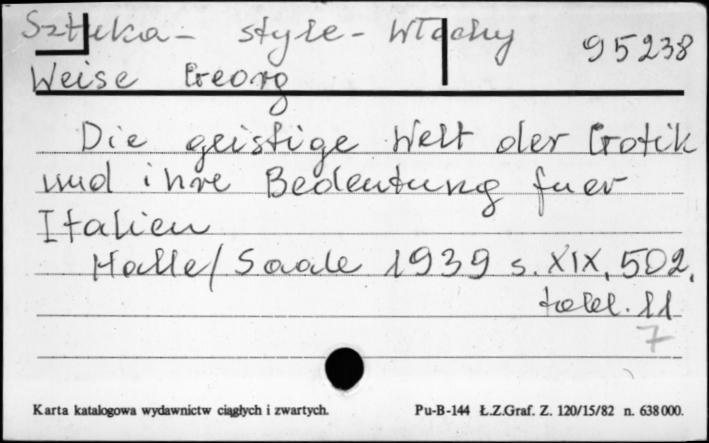 Sztuka - style - Włochy
95238
Weise Georg
Die geistige Welt der Gotik
und ihre Bedeutung fuer
Italien
Halle/Saale 1939 s. XIX, 502,
tabl. 11
7
Karta katalogowa wydawnictw ciągłych i zwartych. Pu-B-144 Ł.Z.Graf. Z. 120/15/82 n. 638 000.